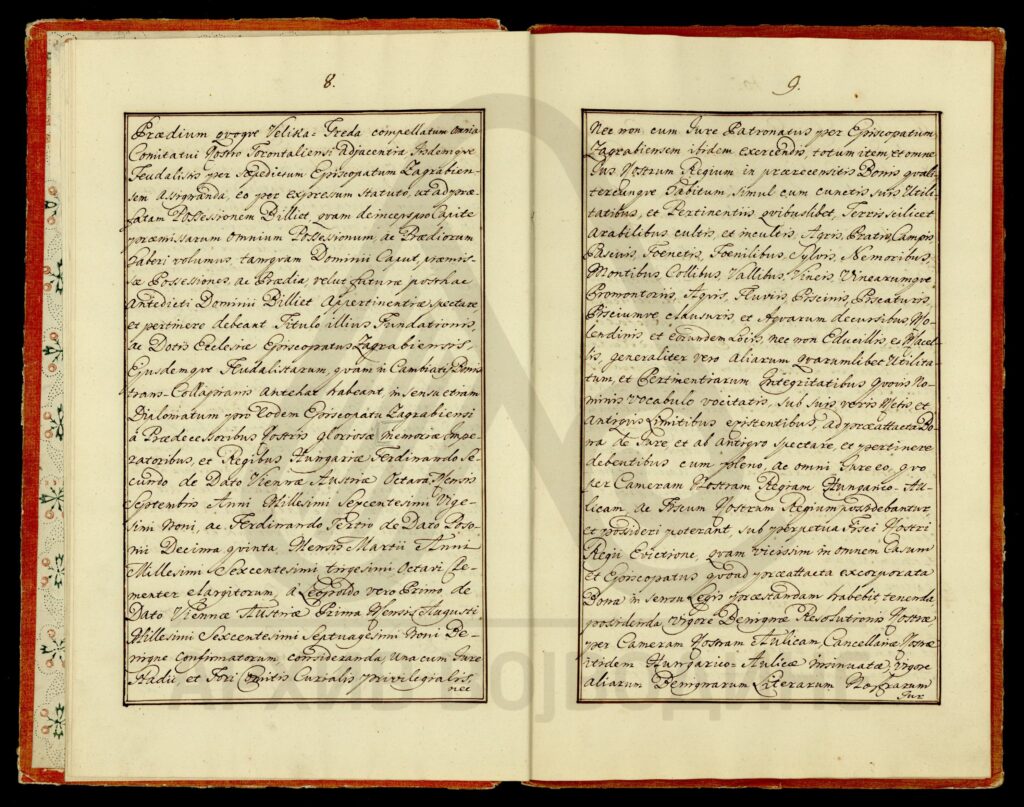 8.
Prædium qvoqve Velika-Greda compellatum omnia
Comitatui Nostro Torontaliensi adjacentia Iisdemqve
Feudalistis per Sæpedictum Episcopatum Zagrabien-
sem assignanda, eo per expressum statuto, ut ad præ-
fatam Possessionem Billiet, qvam deinceps pro Capite
præmissarum omnium Possessionum, ac Prædiorum
haberi volumus, tamqvam Dominii Caput, præmis-
sæ Possessiones, ac Prædia, velut futuræ posthac
Antedicti Dominii Billiet Appertinentiæ spectare
et pertinere debeant Titulo illius Fundationis,
ac Dotis Ecclesiæ Episcopatus Zagrabiensis,
Ejusdemqve Feudalistarum, qvam in Cambiatis Bonis
trans-Collapianis Antehac habeant, in sensu etiam
Diplomatum pro Eodem Episcopatu Zagrabiensi
à Prædecessoribus Nostris gloriosæ memoriæ Impe-
ratoribus, et Regibus Hungariæ Ferdinando Se-
cundo de Dato Viennæ Austriæ Octava Mensis
Septembris Anni Millesimi Sexcentesimi Vige-
simi Noni, ac Ferdinando Tertio de Dato Poso-
nii Decima qvinta Mensis Martii Anni
Millesimi Sexcentesimi trigesimi Octavi Cle-
menter elargitorum, à Leopoldo vero Primo de
Dato Viennæ Austriæ Prima Mensis Augusti
Millesimi Sexcentesimi Septuagesimi Noni Be-
nigne Confirmatorum, consideranda, Una cum Jure
Gladii, et Fori Comitis Curialis privilegialis,
nec
9.
Nec non cum Jure Patronatus per Episcopatum
Zagrabiensem ibidem exercendis, totum item, et omne
Jus Nostrum Regium in præreċensitis Bonis qvali-
tercunqve habitum, simul cum cunctis suis Utili-
tatibus, et Pertinentiis qvibuslibet, Terris scilicet
Arabilibus cultis, et incultis, Agris, Pratis, Campis
Pascuis, Foenetis, Foenilibus, Sylvis, Nemoribus,
Montibus, Collibus, Vallibus, Vineis, Vinearumqve
Promontoriis, Aqvis, Fluviis, Piscinis, Piscaturis,
Pisciumve clausuris, et Aqvarum decursibus, Mo-
lendinis, et eorundem Locis, nec non Educillis, et Macel-
lis, generaliter vero Aliarum qvarumlibet Utilita-
tum, et Pertinentiarum Integritatibus qvovis No-
minis vocabulo vocitatis, sub suis veris Metis, et
Antiqvis Limitibus existentibus, ad præattacta Bo-
na de Jure, et ab antiqvo spectare, et pertinere
debentibus cum pleno, ac omni Jure eo, qvo
per Cameram Nostram Regiam Hungarico-Au-
licam, ac Fiscum Nostrum Regium possidebantur,
et possideri poterant, sub perpetua Fisci Nostri
Regii Evictione, qvam vicissim in omnem Casum
et Episcopatus qvoad præattacta excorporata
Bona in sensu Legis præstandam habebit tenenda
possidenda, Vigore Benignæ Resolutionis Nostræ
per Cameram Nostram Aulicam, Cancellariæ Nostræ
itidem Hungarico-Aulicæ insinuatæ, vigore
aliarum Benignarum Literarum Nostrarum
Jur